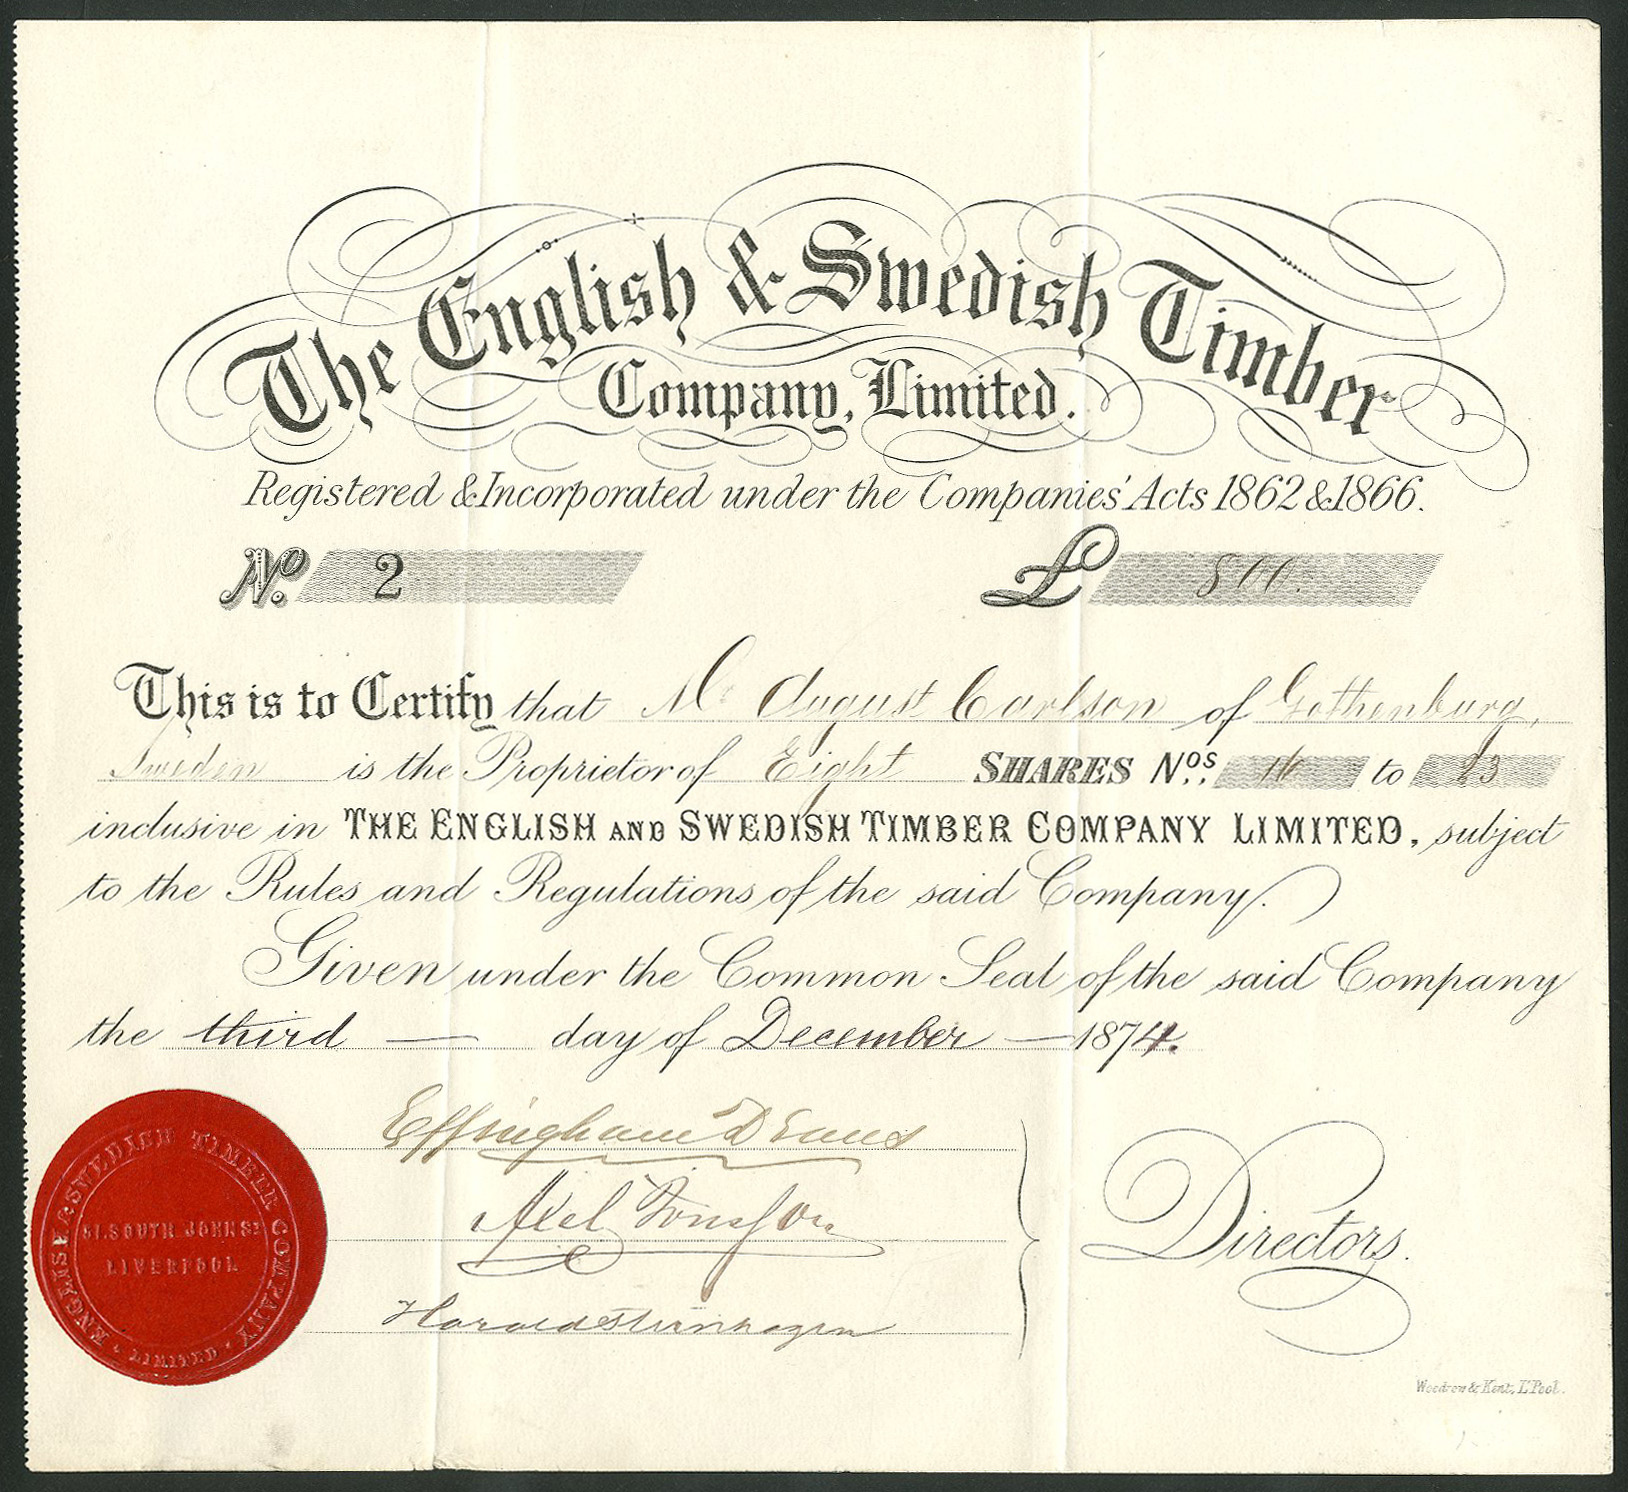 The English & Swedish Timber
Company, Limited.
Registered & Incorporated under the Companies' Acts 1862 & 1866.
No. 2 £ 800.
This is to Certify that Mr August Carlson of Gothenburg,
Sweden is the Proprietor of Eight SHARES Nos. 16 to 23
inclusive in THE ENGLISH AND SWEDISH TIMBER COMPANY LIMITED, subject
to the Rules and Regulations of the said Company.
Given under the Common Seal of the said Company
the third — day of December — 1874.
Effingham D Evans
Axel
Directors.
ENGLISH & SWEDISH TIMBER COMPANY
· LIMITED ·
51. SOUTH JOHN ST
LIVERPOOL
Woodrow & Kent, L'Pool.